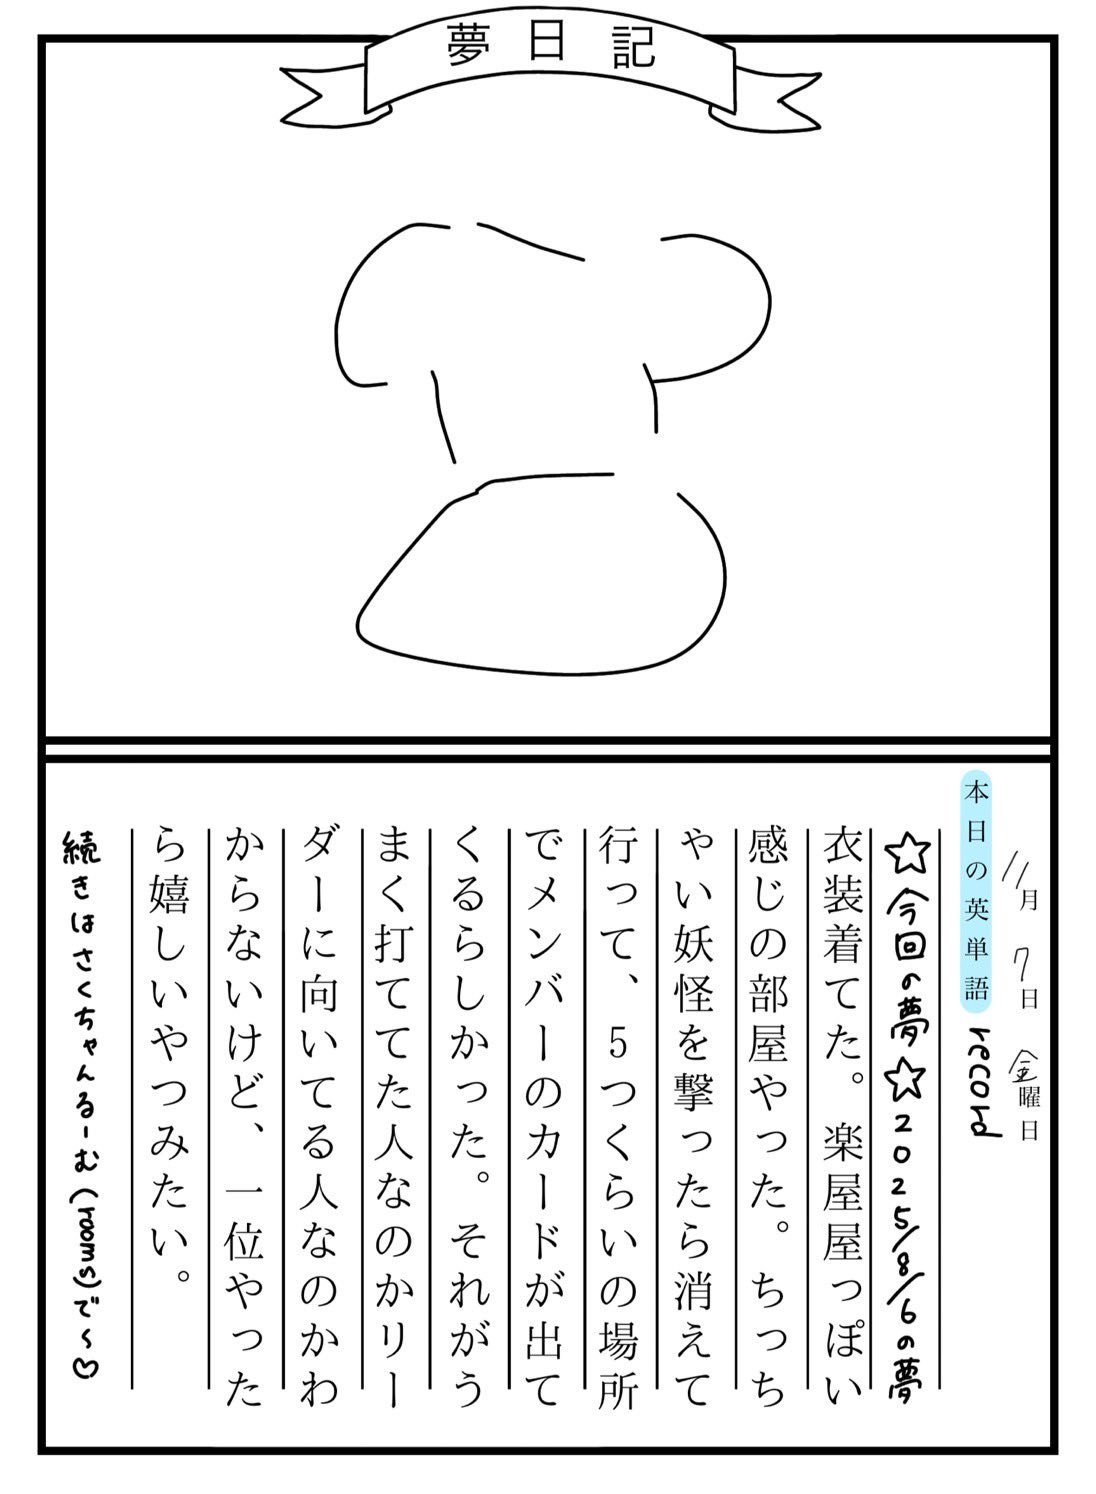 夢日記
11月7日金曜日
本日の英単語 record
☆今回の夢☆2025/8/6の夢
衣装着てた。楽屋屋っぽい
感じの部屋やった。ちっち
ゃい妖怪を撃ったら消えて
行って、5つくらいの場所
でメンバーのカードが出て
くるらしかった。それがう
まく打ててた人なのかリー
ダーに向いてる人なのかわ
からないけど、一位やった
ら嬉しいやつみたい。
続きはさくちゃんるーむ(rooms)で〜♡